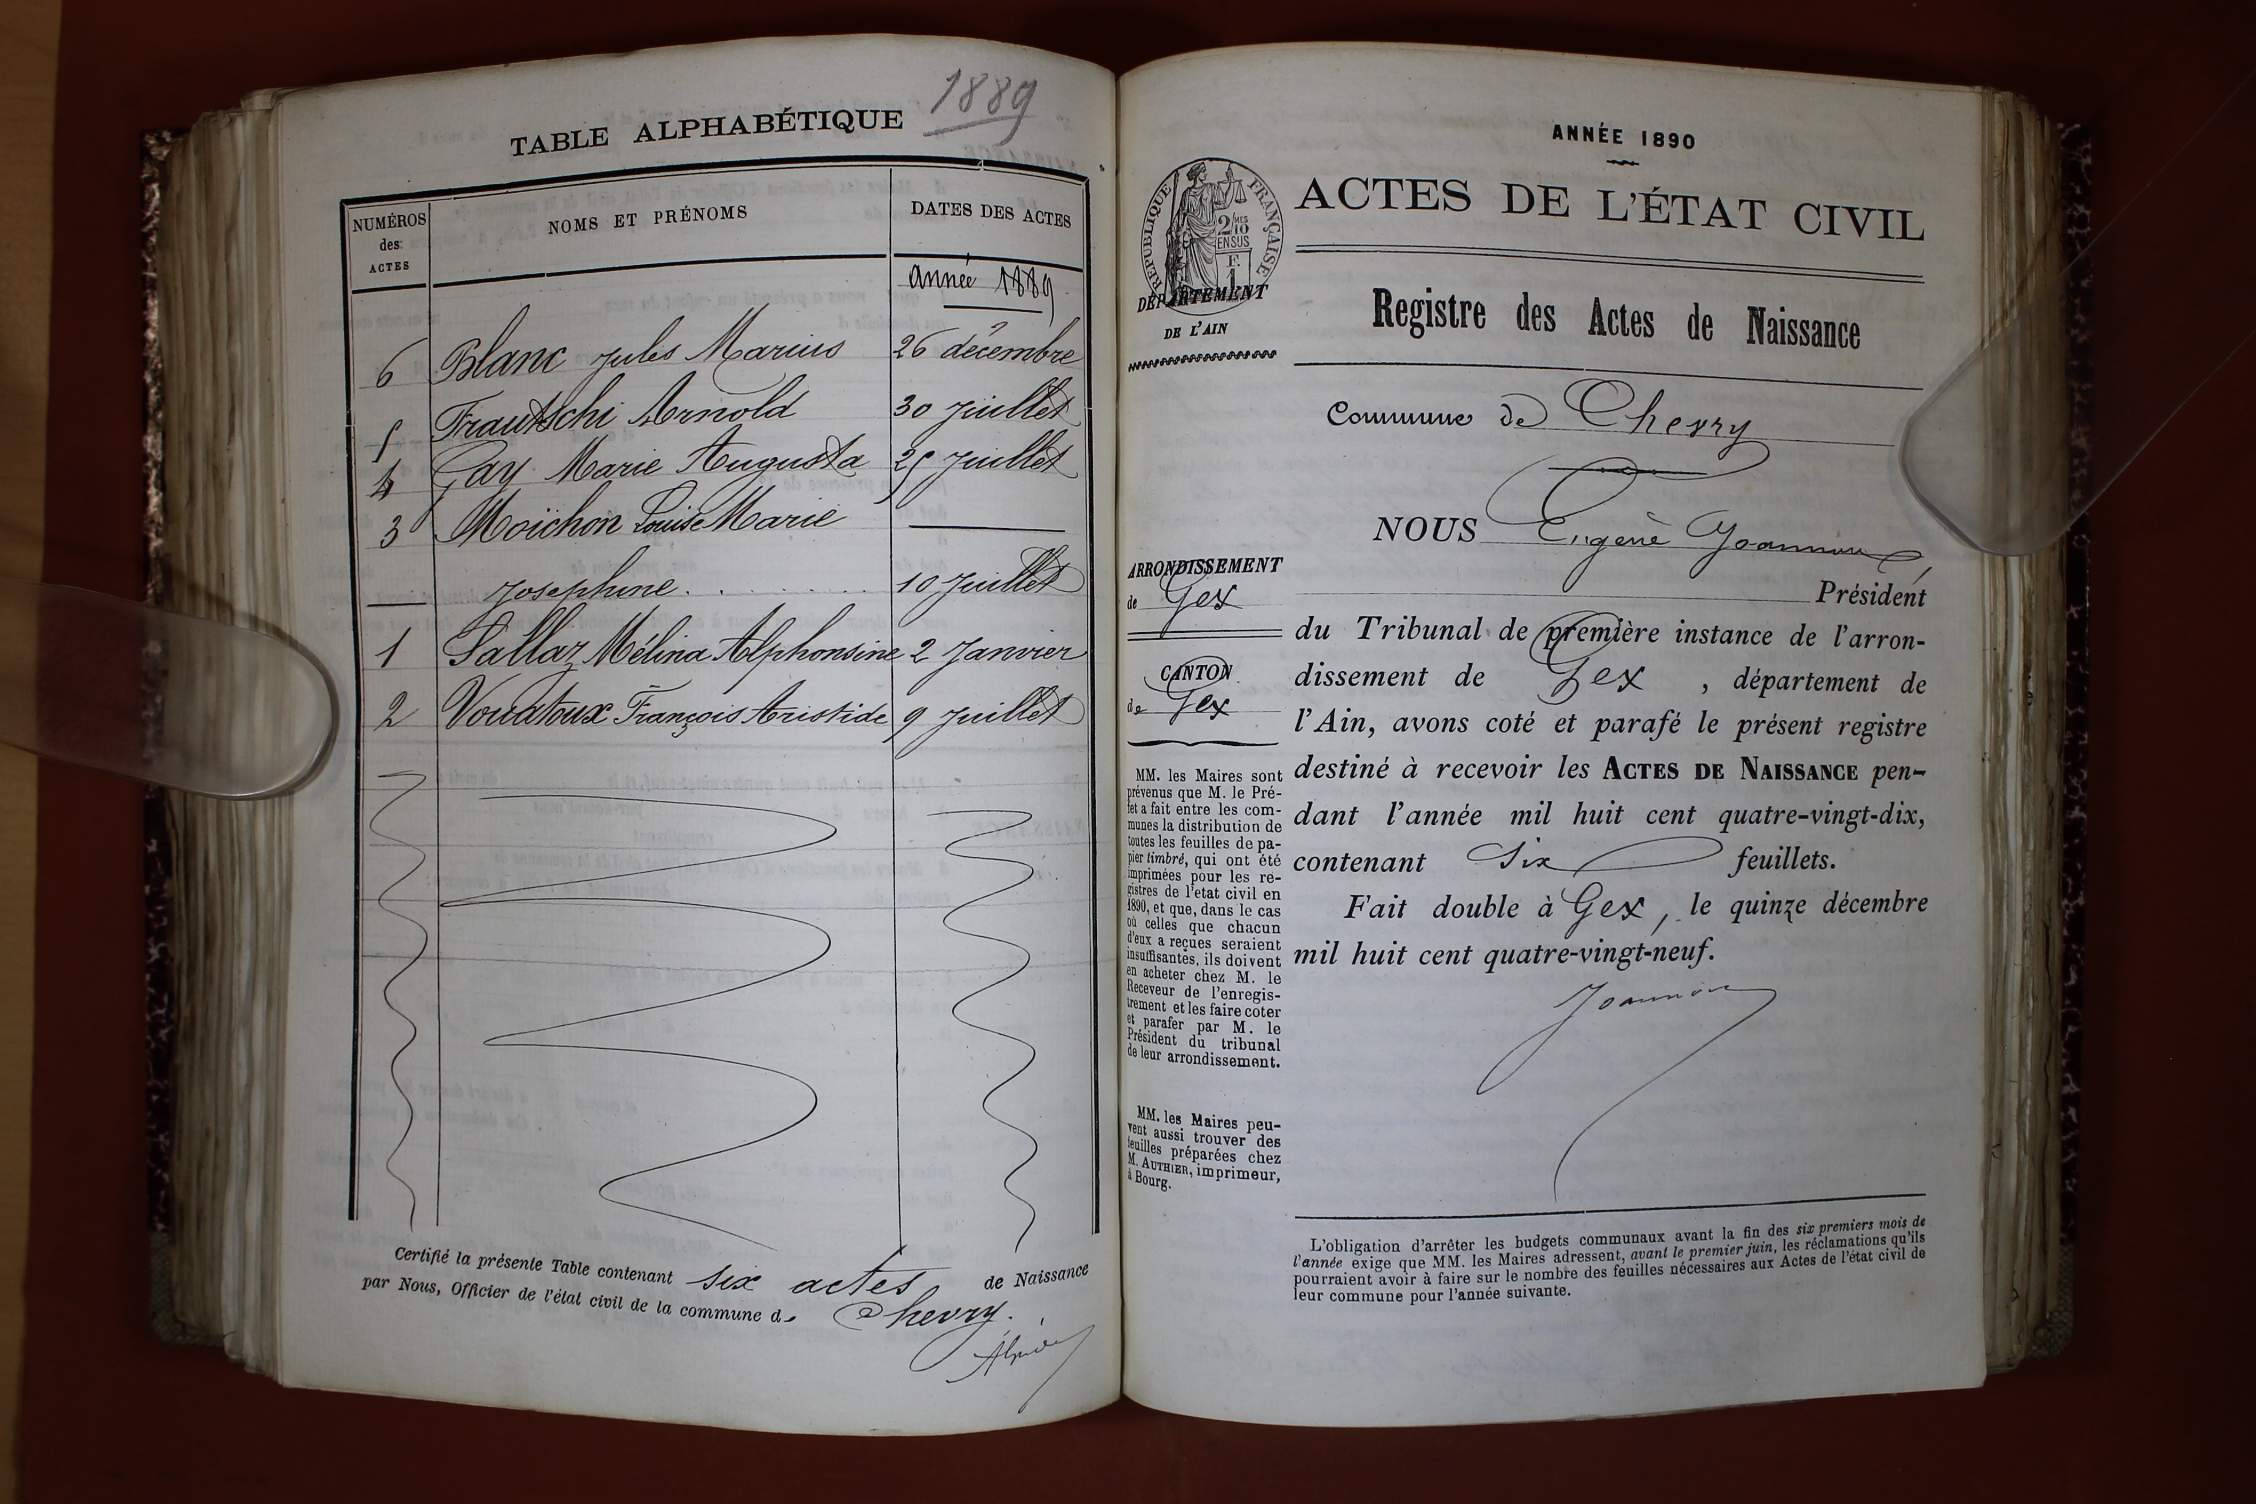 1889
TABLE ALPHABÉTIQUE
NUMÉROS
des
ACTES
NOMS ET PRÉNOMS
DATES DES ACTES
année 1889
6 Blanc Jules Marius 26 décembre
5 Frautschi Arnold 30 Juillet
4 Gay Marie Augusta 25 Juillet
3 Moïchon Louise Marie
Josephine . . . . . . . . . 10 Juillet
1 Sallaz Mélina Alphonsine 2 Janvier
2 Vouatoux François Aristide 9 Juillet
Certifié la présente Table contenant six actes de Naissance
par Nous, Officier de l'état civil de la commune de Chevry.
ANNÉE 1890
ACTES DE L'ÉTAT CIVIL
RÉPUBLIQUE FRANÇAISE
2/10 MES
EN SUS
F.
1
DÉPARTEMENT
DE L'AIN
Registre des Actes de Naissance
Commune de Chevry
NOUS Eugène
Président
du Tribunal de première instance de l'arron-
dissement de Gex, département de
l'Ain, avons coté et parafé le présent registre
destiné à recevoir les ACTES DE NAISSANCE pen-
dant l'année mil huit cent quatre-vingt-dix,
contenant Six feuillets.
Fait double à Gex, le quinze décembre
mil huit cent quatre-vingt-neuf.
ARRONDISSEMENT
de Gex
CANTON
de Gex
MM. les Maires sont
prévenus que M. le Pré-
fet a fait entre les com-
munes la distribution de
toutes les feuilles de pa-
pier timbré, qui ont été
imprimées pour les re-
gistres de l'etat civil en
1890, et que, dans le cas
où celles que chacun
d'eux a reçues seraient
insuffisantes, ils doivent
en acheter chez M. le
Receveur de l'enregis-
trement et les faire coter
et parafer par M. le
Président du tribunal
de leur arrondissement.
MM. les Maires peu-
vent aussi trouver des
feuilles préparées chez
M. AUTHIER, imprimeur,
à Bourg.
L'obligation d'arrêter les budgets communaux avant la fin des six premiers mois de
l'année exige que MM. les Maires adressent, avant le premier juin, les réclamations qu'ils
pourraient avoir à faire sur le nombre des feuilles nécessaires aux Actes de l'état civil de
leur commune pour l'année suivante.